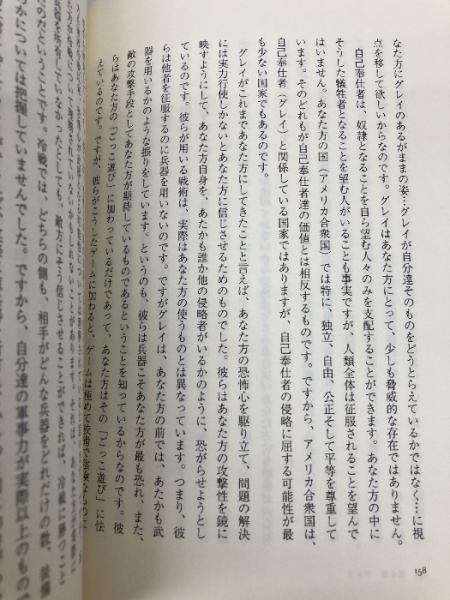 なた方にグレイのあるがままの姿…グレイが自分達そのものをどうとらえているかではなく…に視
点を移して欲しいからなのです。グレイはあなた方にとって、少しも脅威的な存在ではありません。
自己奉仕者は、奴隷となることを自ら望む人々のみを支配することができます。あなた方の中に
そうした犠牲者となることを望む人がいることも事実ですが、人類全体は征服されることを望んで
はいません。あなた方の国（アメリカ合衆国）では特に、独立、自由、公正そして平等を尊重して
います。そのどれもが自己奉仕者達の価値とは相反するものです。ですから、アメリカ合衆国は、
自己奉仕者（グレイ）と関係している国家ではありますが、自己奉仕者の侵略に屈する可能性が最
も少ない国家でもあるのです。
グレイがこれまであなた方にしてきたことと言えば、あなた方の恐怖心を駆り立て、問題の解決
には実力行使しかないとあなた方に信じさせるためのものでした。彼らはあなた方の攻撃性を鏡に
映すようにして、あなた方自身を、あたかも誰か他の侵略者がいるかのように、恐がらせようとし
ているのです。彼らが用いる戦術は、実際はあなた方の使うものとは異なっています。つまり、彼
らは他者を征服するのに兵器を用いないのです。ですがグレイは、あなた方の前では、あたかも武
器を用いるかのような振りをしています。というのも、彼らは兵器こそあなた方が最も恐れ、また、
敵の攻撃手段としてあなた方が期待しているものであるということを知っているからなのです。彼
らはあなた方の「ごっこ遊び」に加わっているだけであって、あなた方はその「ごっこ遊び」に怯
えているのです。ですが、彼らがこうしたゲームに加わると、ゲームは極めて
たのだということです。冷戦では、どちらの側も、相手がどんな兵器をどれだけの数、装備
かについては把握していませんでした。ですから、自分達の軍事力が実際以上のもので
158